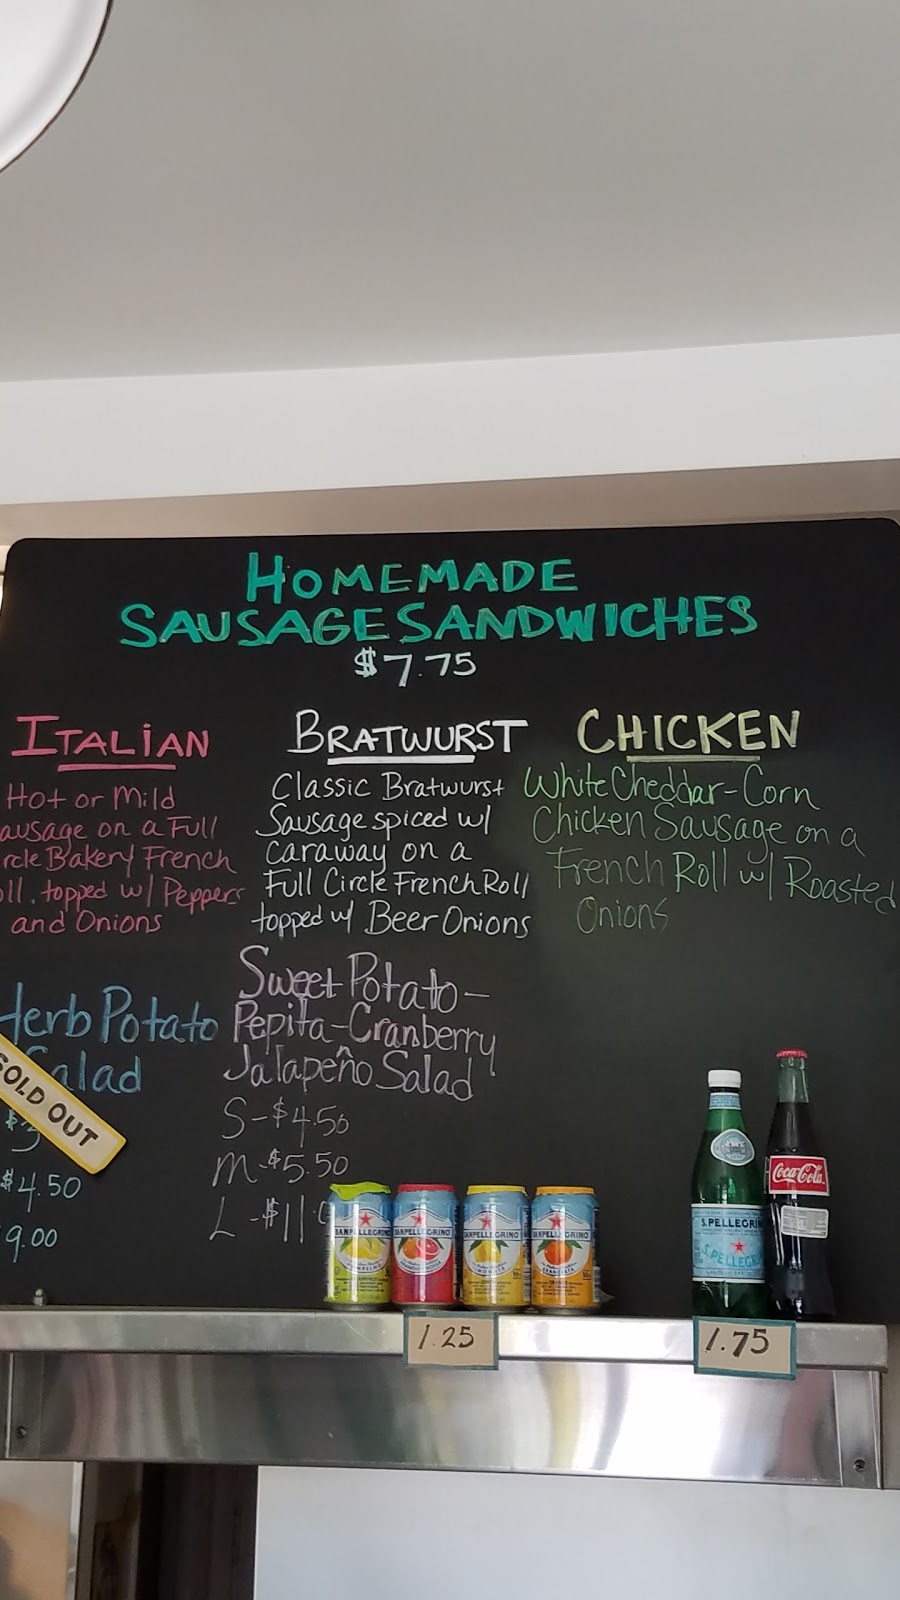 HOMEMADE
SAUSAGE SANDWICHES
$7.75
ITALIAN
Hot or Mild
ausage on a Full
rcle Bakery French
ll. topped w/ Peppers
and Onions
BRATWURST
Classic Bratwurst
Sausage spiced w/
Caraway on a
Full Circle French Roll
topped w/ Beer Onions
CHICKEN
White Cheddar-Corn
Chicken Sausage on a
French Roll w/ Roasted
Onions
Herb Potato
Salad
SOLD OUT
$3
$4.50
9.00
Sweet Potato-
Pepita-Cranberry
Jalapeño Salad
S-$4.50
M-$5.50
L-$11.
SANPELLEGRINO
SANPELLEGRINO
SANPELLEGRINO
SANPELLEGRINO
S.PELLEGRINO
S.PELLEGRINO
Coca-Cola
1.25
1.75